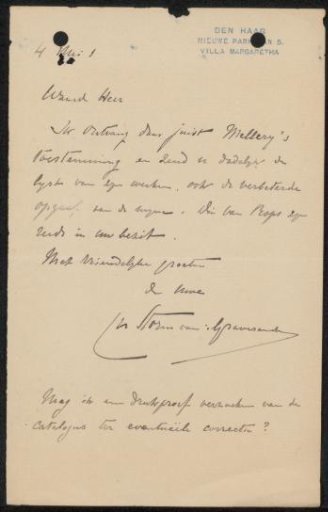 DEN HAAG
NIEUWE PARKLAAN 5.
VILLA MARGARETHA
4 Mei
Waarde Heer
Ik ontvang daar juist Mellery's
toestemming en zend u dadelijk de
lijst van zijn werken, ook de verbeterde
opgaaf van de mijne. Die van Rops zijn
reeds in uw bezit.
Met vriendelijke groeten
de uwe
Ch Storm van 's Gravesande
Mag ik een drukproef verzoeken van de
catalogus ter eventueële correctie?